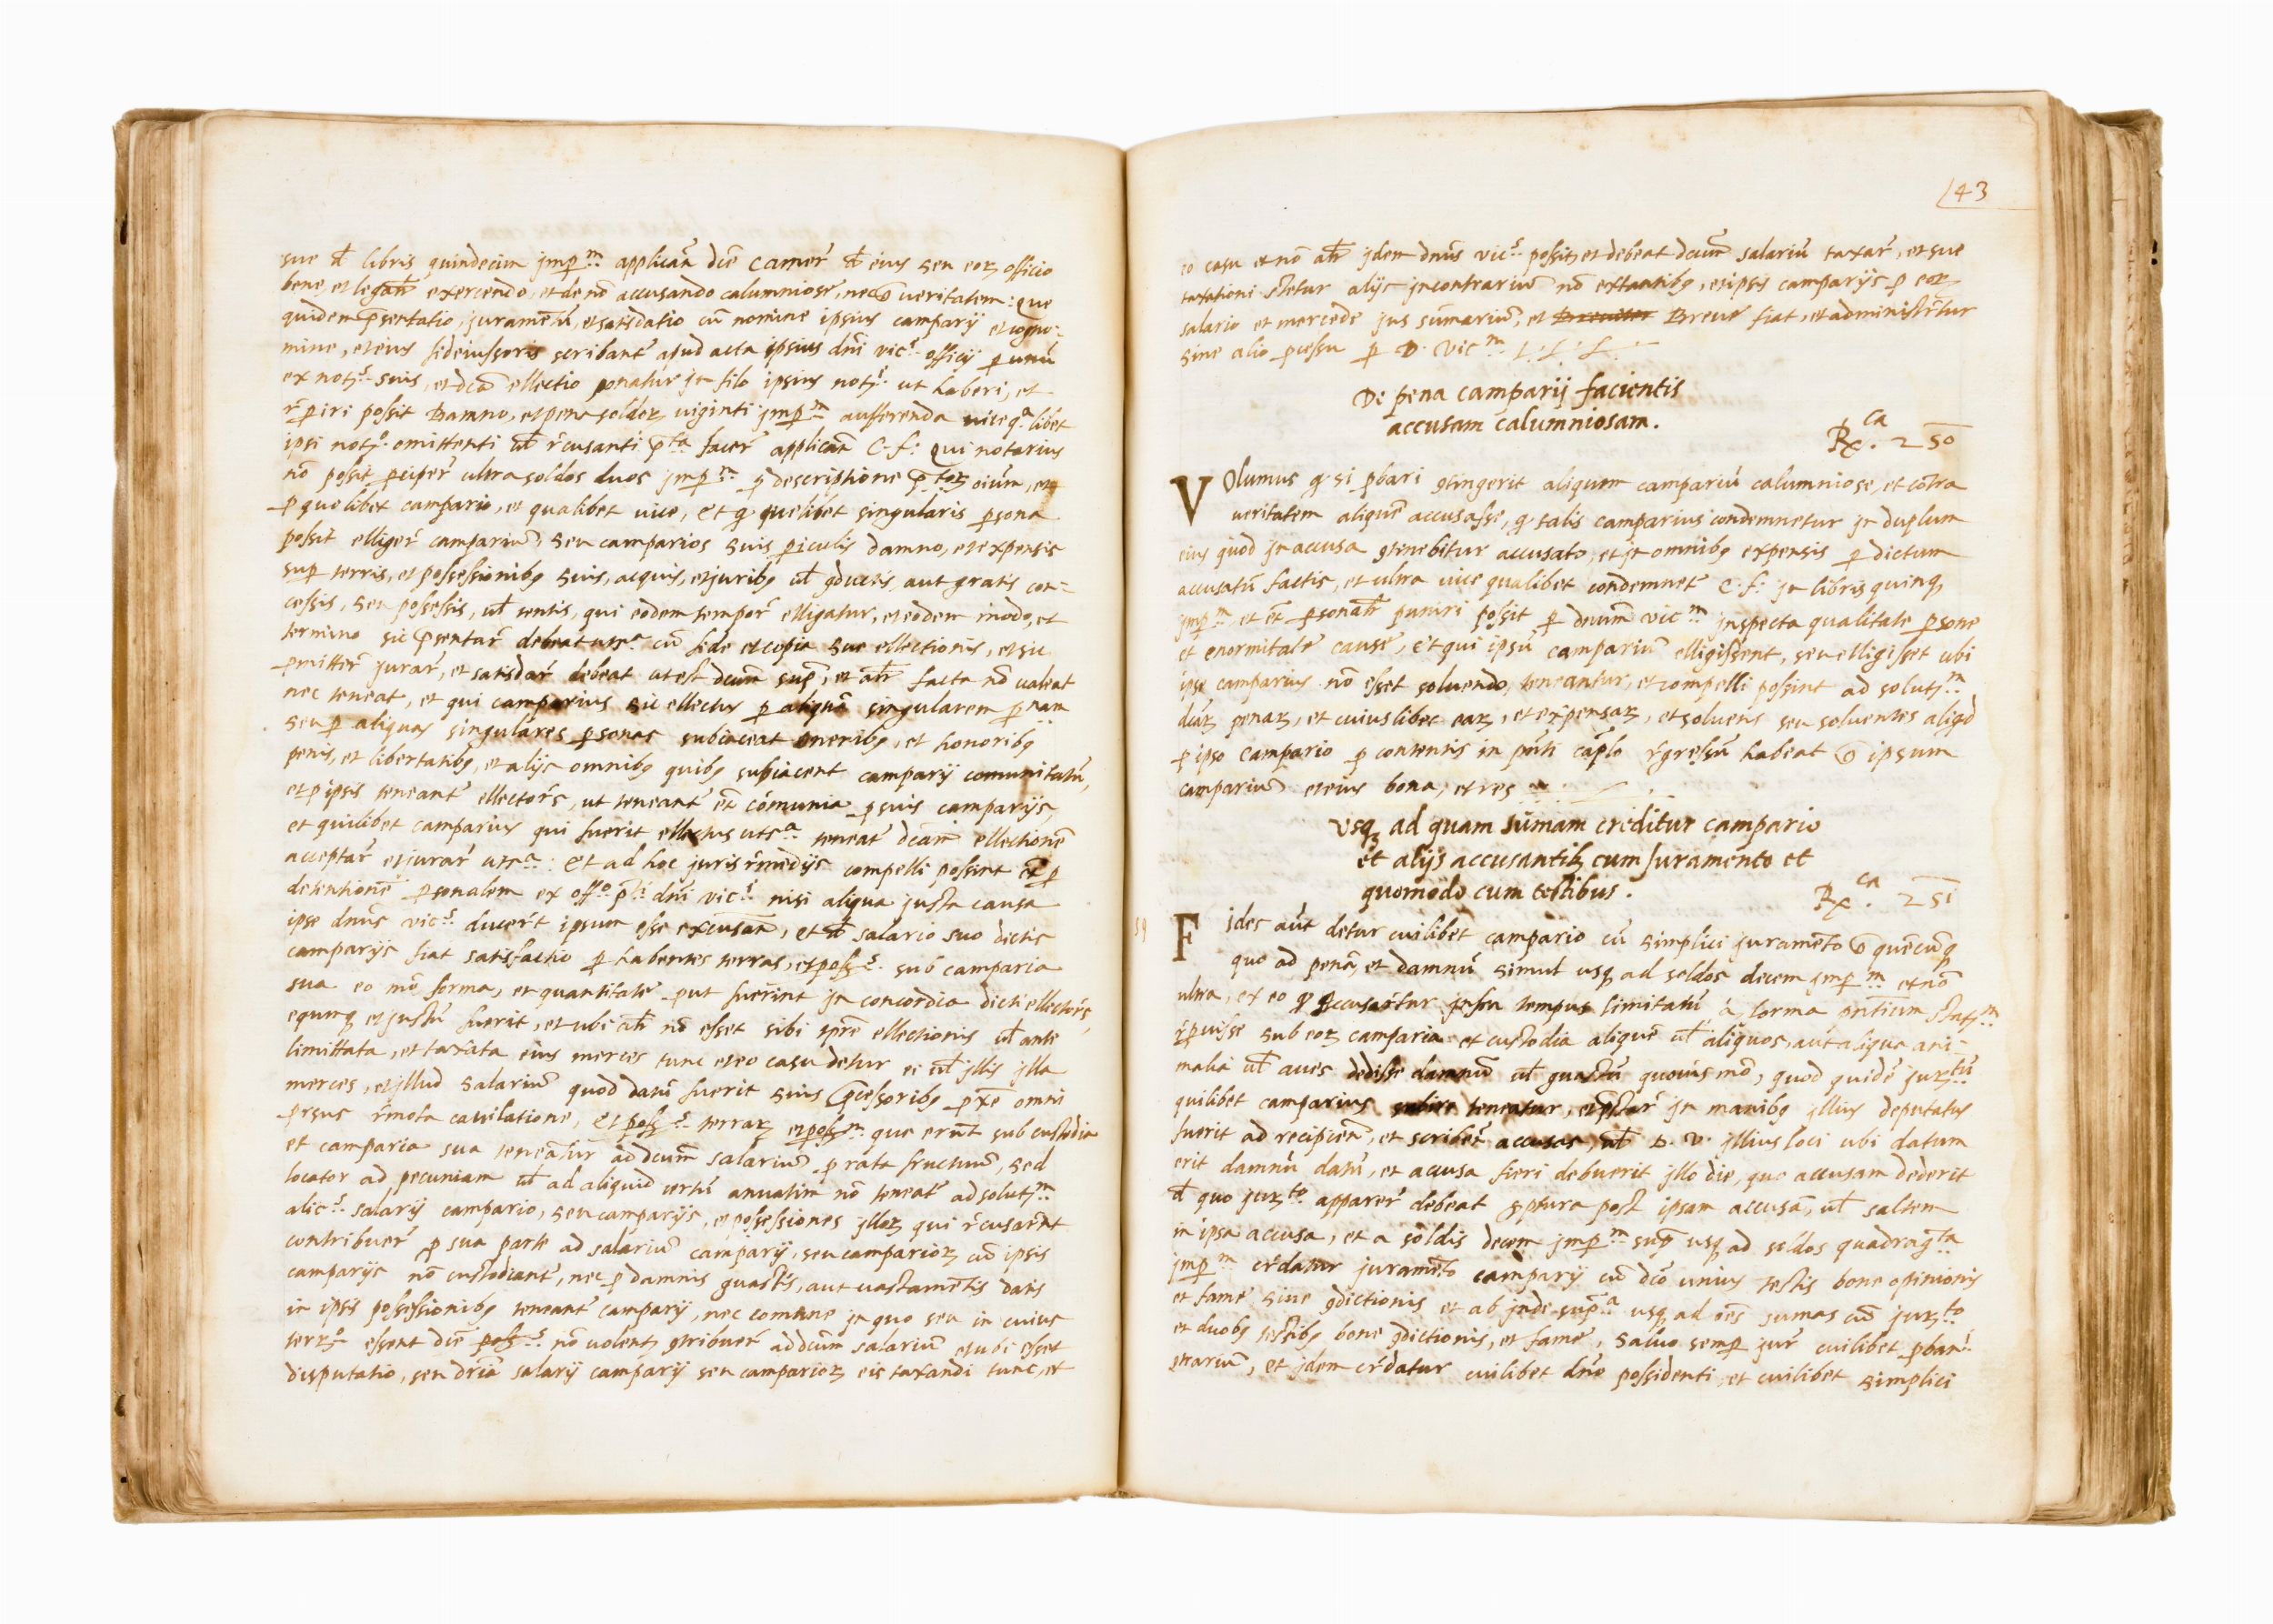 sue đ libris quindecim jmp.m applican̄ dce͂ camer̄ đ eius seu eorꝝ officio
bene, et legatr̄ exercendo, et de nō accusando calumniose, nec 9͂ ueritatem: que
quidem p̄sentatio, juramentū, et satisdatio cū nomine ipsius camparij et cogno-
mine, et eius fideiussoris scribant̄ apud acta ipsius dn̄i vic.s officij ꝑ unū
ex not.s suis, et dc̄a ellectio ponatur in filo ipsius not.i ut haberi, et
r̄ꝑiri possit Damno, et pena soldorꝝ uiginti jmp.m aufferenda uice q.a libet
ipsi not.o omittenti ul̄ r̄cusanti p̄.ta facer̄ applican̄ C. f: Qui notarius
nō possit ꝑciper̄ ultra soldos duos jmp.m ꝓ descriptione p̄.torꝝ oiūm, et
ꝓ quolibet campario, et qualibet uice, Et ꝙ quelibet singularis ꝑsona
possit elliger̄ campariū, seu camparios suis ꝑiculis damno, et expensis
suꝑ terris, et possessionibꝫ suis, acquis, et juribꝫ ul̄ 9ductis, aut gratis con-
cessis, seu possessis, ul̄ tentis, qui eodem tempor̄ elligatur, et eodem modo, et
termino sic p̄sentar̄ debeat ut s.a cū fide et copia sue ellectionis, et sic
ꝓmitter̄ jurar̄, et satisdar̄ debeat ut est dcūm sup.a, et atr̄ facta nō ualeat
nec teneat, et qui camparius sic ellectus ꝑ aliquā singularem ꝑ.nam
seu ꝑ aliquas singulares ꝑsonas subiaceat oneribꝫ, et honoribꝫ
penis, et libertatibꝫ, et alijs omnibꝫ quibꝫ subiacent camparij comunitatū,
et ꝓ ipsis teneant̄ ellector̄s, ut teneant̄ et̄ cōmunia ꝓ suis camparijs,
et quilibet camparius qui fuerit ellectus ut s.a teneat̄ dcām ellectionē
acceptar̄ et jurar̄ ut s.a: Et ad hoc juris r̄medijs compelli possint et̄ ꝑ
detentionē ꝑsonalem ex off.o p̄.ti dn̄i vic.i nisi aliqua justa causa
ipse dnūs vic.s ducer̄t ipsum esse excusan̄, et đ salario suo dictis
camparijs fiat satisfactio ꝑ habentes terras, et poss.s sub camparia
sua eo mō forma, et quantitate ꝓut fuerint in concordia dicti ellector̄s,
equnqꝫ et justū fuerit, et ubi atr̄ nō esset sibi tꝑre ellectionis ul̄ ante
limittata, et taxata eius merces tunc et eo casu detur ei ul̄ jllis jlla
merces, et jllud salariū quod datū fuerit suis p̄cessoribꝫ ꝓxe͂ omni
ꝓrsus r̄mota cauilatione, Et poss.s terrarꝝ et poss.m que erūt sub custodia
et camparia sua teneātur ad dcūm salariū ꝓ rata fructuū, sed
locator ad pecuniam ul̄ ad aliquid certū anuatim nō teneat̄ ad solut.m
alic.s salarij campario, seu camparijs, et possessiones jllorꝝ qui r̄cusarēt
contribuer̄ ꝓ sua parte ad salariū camparij, seu campariorꝝ cū ipsis
camparijs nō custodiant̄, nec ꝓ damnis guastis, aut uastamētis datis
in ipsis possessionibꝫ teneant̄ camparij, nec comune in quo seu in cuius
terr.o essent dce͂ poss.s nō uolent. 9tribuer̄ ad dcūm salariū et ubi esset
disputatio, seu dr̄ia salarij camparij seu campariorꝝ eis taxandi tunc, et
143
eo casu et nō atr̄ jdem dnūs vic.s possit, et debeat dcūm salariū taxar̄, et sue
taxationi stetur alijs in contrariū nō extantibꝫ, et ipsis camparijs ꝓ eorꝝ
salario et mercede jus sūmariū, et Breue fiat, et administr̄tur
sine alio ꝓcessu ꝑ D. vic.m
De pena camparij facientis
accusam calumniosam.
Rx.ca 250
Volumus ꝙ si ꝓbari 9tingerit aliquem campariū calumniose, et cōtra
ueritatem aliquē accusasse, ꝙ talis camparius condemnetur in duplum
eius quod in accusa 9tinebitur accusato, et in omnibꝫ expensis ꝑ dictum
accusatū factis, et ultra uice qualibet condemnet̄ C. f: in libris quinqꝫ
jmp.m, et et̄ ꝑsonatr̄ puniri possit ꝑ dnūm vic.m inspecta qualitate ꝑsone
et enormitate cause, Et qui ipsū campariū elligissent, seu elligisset ubi
ipse camparius nō esset soluendo, teneantur, et compelli possint ad solut.m
dcārꝝ penarꝝ, et cuiuslibet earꝝ, et expensarꝝ, et soluens seu soluentes aliqd
ꝓ ipso campario ꝑ contentis in pn̄ti cāplo r̄gressū habeat 9͂ ipsum
campariū et eius bona, et res
Vsqꝫ ad quam sūmam creditur campario
et alijs accusantibꝫ cum juramento et
quomodo cum testibus.
Rx.ca 251
59
Fides aūt detur cuilibet campario cū simplici juramēto 9͂ quēcūqꝫ
quo ad penā, et damnū simul usqꝫ ad soldos decem jmp.m et nō
ultra, ex eo ꝙ accusar̄tur infra tempus limitatū a, forma pn̄tium stat.m
r̄ꝑuisse sub eorꝝ camparia et custodia aliquē ul̄ aliquos, aūt aliqua ani-
malia ul̄ aues dedisse damnū ul̄ guastū quouis mō, quod quidē jur.tū
quilibet camparius subire teneatur, et p̄star̄ in manibꝫ jllius deputatus
fuerit ad recipien̄, et scriben̄ accusas, ul̄ D. V. jllius loci ubi datum
erit damnū datū, et accusa fieri debuerit jllo die, quo accusam dederit
đ quo jur.to apparer̄ debeat sc̄ptura post ipsam accusā, ul̄ saltem
in ipsa accusa, et a soldis decem jmp.m sup.a usqꝫ ad soldos quadrag.ta
jmp.m cr̄datur juramēto camparij cū dcō unius testis bone opinionis
et fame sine 9dictionis et ab jnde sup.a usqꝫ ad oēs sumas cū jur.to
et duobꝫ testibꝫ bone 9dictionis, et fame, Saluo semꝑ jur̄ cuilibet ꝓban̄.i
9trariū, et jdem cr̄datur cuilibet dn̄o possidenti, et cuilibet simplici